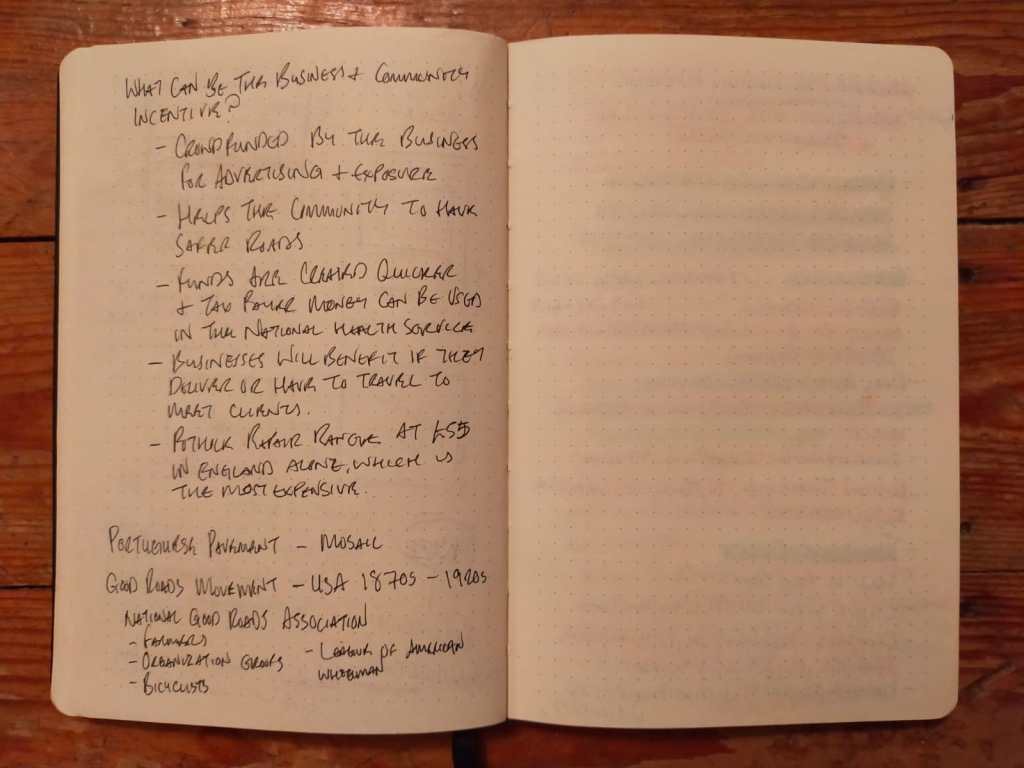 WHAT CAN BE THE BUSINESS + COMMUNITY
INCENTIVE?
- CROWDFUNDED BY THE BUSINESS
FOR ADVERTISING + EXPOSURE
- HELPS THE COMMUNITY TO HAVE
SAFER ROADS
- FUNDS ARE CREATED QUICKER
+ TAX PAYER MONEY CAN BE USED
IN THE NATIONAL HEALTH SERVICE
- BUSINESSES WILL BENEFIT IF THEY
DELIVER OR HAVE TO TRAVEL TO
MEET CLIENTS.
- POTHOLE REPAIR RANGE AT £55
IN ENGLAND ALONE, WHICH IS
THE MOST EXPENSIVE.
PORTUGUESE PAVEMENT - MOSAIC
GOOD ROADS MOVEMENT - USA 1870S - 1920S
NATIONAL GOOD ROADS ASSOCIATION
- FARMERS
- ORGANIZATION GROUPS
- BICYCLISTS
- LEAGUE OF AMERICAN
WHEELMAN